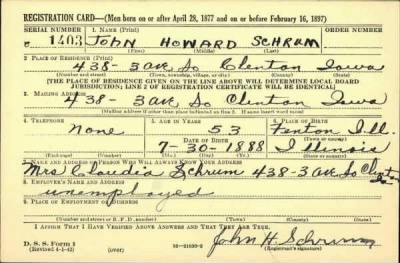 REGISTRATION CARD—(Men born on or after April 28, 1877 and on or before February 16, 1897)
SERIAL NUMBER 1. NAME (Print) ORDER NUMBER
1403 JOHN HOWARD SCHRUM
(First) (Middle) (Last)
2. PLACE OF RESIDENCE (Print)
438-3 Ave So Clinton Iowa
(Number and street) (Town, township, village, or city) (County) (State)
[THE PLACE OF RESIDENCE GIVEN ON THE LINE ABOVE WILL DETERMINE LOCAL BOARD
JURISDICTION; LINE 2 OF REGISTRATION CERTIFICATE WILL BE IDENTICAL]
3. MAILING ADDRESS
438-3 Ave So Clinton Iowa
[Mailing address if other than place indicated on line 2. If same insert word same]
4. TELEPHONE 5. AGE IN YEARS 6. PLACE OF BIRTH
None 53 Fenton Ill.
DATE OF BIRTH (Town or county)
7-30-1888 Illinois
(Exchange) (Number) (Mo.) (Day) (Yr.) (State or country)
7. NAME AND ADDRESS OF PERSON WHO WILL ALWAYS KNOW YOUR ADDRESS
Mrs Claudia Schrum 438-3 Ave So Clinton
8. EMPLOYER'S NAME AND ADDRESS
unemployed
9. PLACE OF EMPLOYMENT OR BUSINESS
(Number and street or R. F. D. number) (Town) (County) (State)
I AFFIRM THAT I HAVE VERIFIED ABOVE ANSWERS AND THAT THEY ARE TRUE.
D. S. S. Form 1
(Revised 4-1-42) (over) John H Schrum